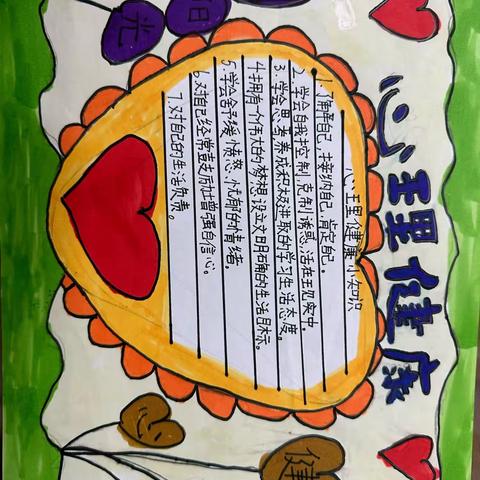 心理健康
阳光
心理健康小知识
1. 了解自己,接纳自己,肯定自己。
2. 学会自我控制,克制诱惑,活在现实中。
3. 学会思考养成积极进取的学习生活态度。
4. 拥有一个伟大的梦想,设立文明确的生活目标。
5. 学会舒缓愤怒、忧郁的情绪。
6. 对自己经常鼓励增强自信心。
7. 对自己的生活负责。
健